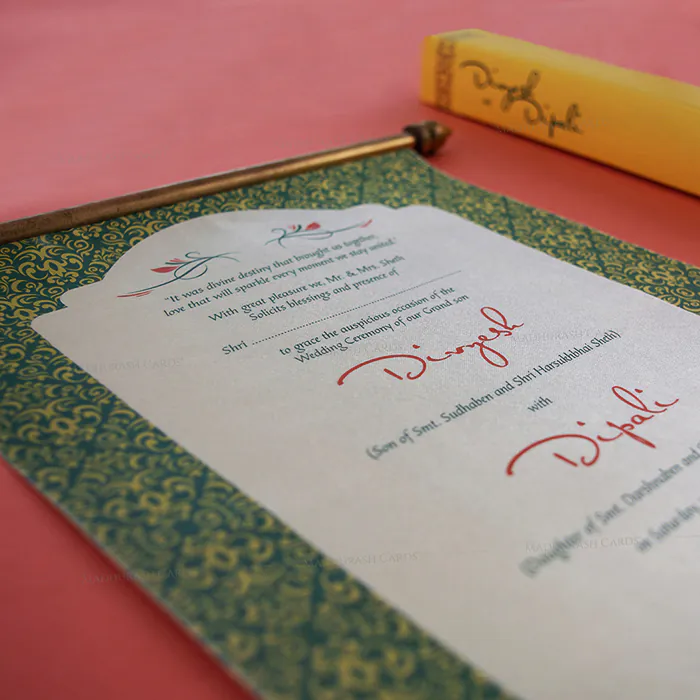 "It was divine destiny that brought us together,
love that will sparkle every moment we stay united."
With great pleasure we, Mr. & Mrs. Sheth
Solicits blessings and presence of
Shri ................................................
to grace the auspicious occasion of the
Wedding Ceremony of our Grand son
Divyesh
(Son of Smt. Sudhaben and Shri Harsukhbhai Sheth)
with
Dipali
(Daughter of Smt. Darshnaben and
on Saturday,
Divyesh
Dipali
MADHURASH CARDS
MADHURASH CARDS